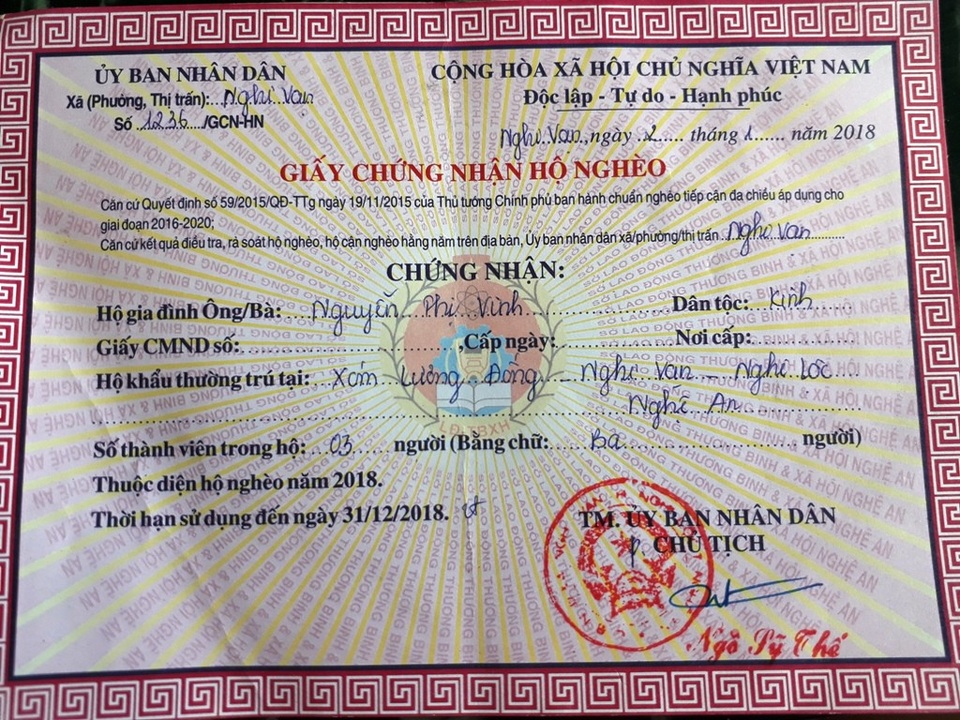 ỦY BAN NHÂN DÂN
Xã (Phường, Thị trấn): Nghi Vạn
Số 1236 /GCN-HN
CỘNG HÒA XÃ HỘI CHỦ NGHĨA VIỆT NAM
Độc lập - Tự do - Hạnh phúc
Nghi Vạn, ngày 2 tháng 1 năm 2018
GIẤY CHỨNG NHẬN HỘ NGHÈO
Căn cứ Quyết định số 59/2015/QĐ-TTg ngày 19/11/2015 của Thủ tướng Chính phủ ban hành chuẩn nghèo tiếp cận đa chiều áp dụng cho
giai đoạn 2016-2020;
Căn cứ kết quả điều tra, rà soát hộ nghèo, hộ cận nghèo hằng năm trên địa bàn, Ủy ban nhân dân xã/phường/thị trấn Nghi Vạn
CHỨNG NHẬN:
Hộ gia đình Ông/Bà: Nguyễn Phi Vinh Dân tộc: Kinh
Giấy CMND số: ,Cấp ngày: Nơi cấp:
Hộ khẩu thường trú tại: Xóm Lương Đông Nghi Vạn - Nghi Lộc
Nghệ An
Số thành viên trong hộ: 03 người (Bằng chữ: Ba người)
Thuộc diện hộ nghèo năm 2018.
Thời hạn sử dụng đến ngày 31/12/2018.
TM. ỦY BAN NHÂN DÂN
P. CHỦ TỊCH
Ngô Sỹ Thế
LĐ-TBXH
SỞ LAO ĐỘNG THƯƠNG BINH & XÃ HỘI NGHỆ AN